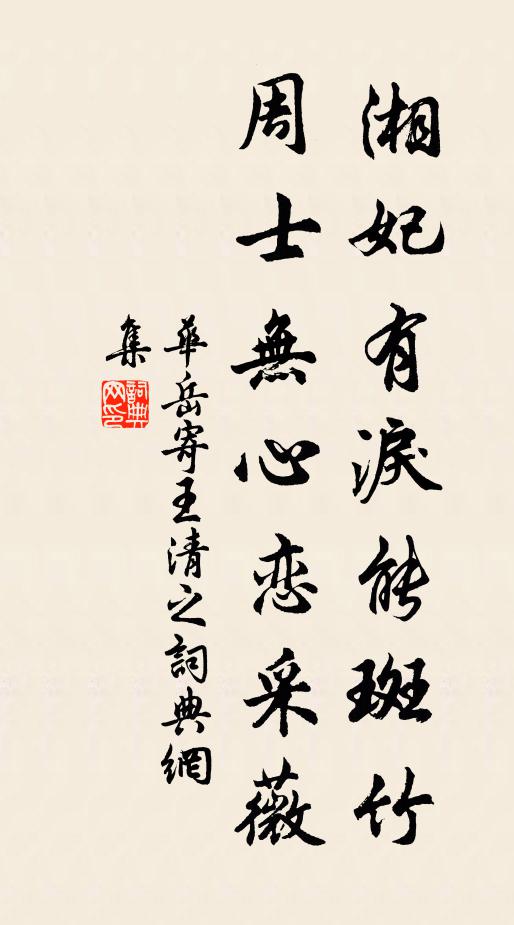 湘妃有淚能斑竹
周士無心恋采薇
華岳寄王清之詞典網
集
詞典
网印